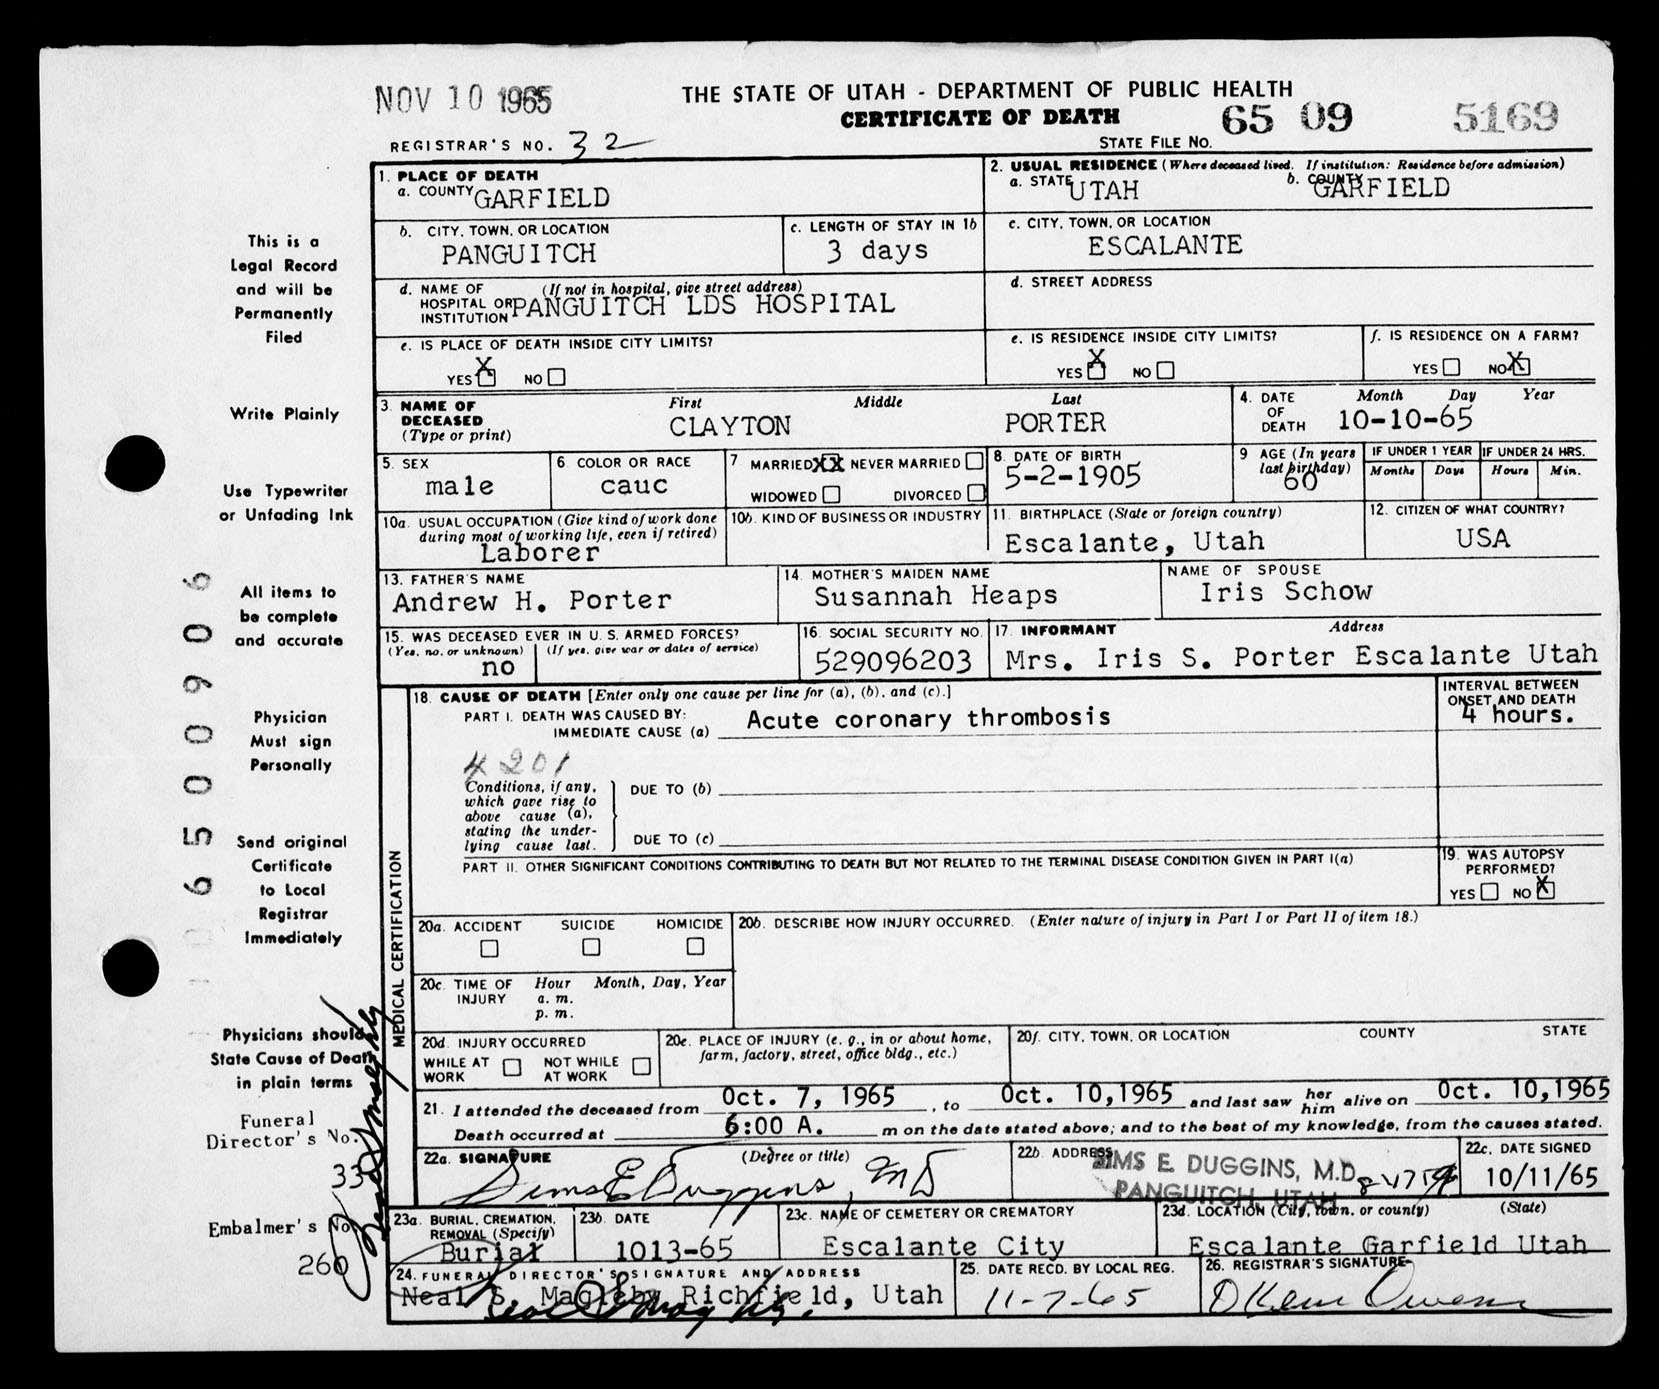 NOV 10 1965
THE STATE OF UTAH - DEPARTMENT OF PUBLIC HEALTH
CERTIFICATE OF DEATH
65 09 5169
REGISTRAR'S NO. 32
STATE FILE NO.
1. PLACE OF DEATH
a. COUNTY GARFIELD
2. USUAL RESIDENCE (Where deceased lived. If institution: Residence before admission)
a. STATE UTAH b. COUNTY GARFIELD
b. CITY, TOWN, OR LOCATION
PANGUITCH
c. LENGTH OF STAY IN 1b
3 days
c. CITY, TOWN, OR LOCATION
ESCALANTE
d. NAME OF (If not in hospital, give street address)
HOSPITAL OR
INSTITUTION PANGUITCH LDS HOSPITAL
d. STREET ADDRESS
e. IS PLACE OF DEATH INSIDE CITY LIMITS?
YES X NO
e. IS RESIDENCE INSIDE CITY LIMITS?
YES X NO
f. IS RESIDENCE ON A FARM?
YES NO X
3. NAME OF DECEASED
(Type or print)
First Middle Last
CLAYTON PORTER
4. DATE OF DEATH
Month Day Year
10-10-65
5. SEX
male
6 COLOR OR RACE
cauc
7 MARRIED XX NEVER MARRIED
WIDOWED DIVORCED
8. DATE OF BIRTH
5-2-1905
9 AGE (In years last birthday)
60
IF UNDER 1 YEAR
Months Days
IF UNDER 24 HRS.
Hours Min.
10a. USUAL OCCUPATION (Give kind of work done
during most of working life, even if retired)
Laborer
10b. KIND OF BUSINESS OR INDUSTRY
11. BIRTHPLACE (State or foreign country)
Escalante, Utah
12. CITIZEN OF WHAT COUNTRY?
USA
13. FATHER'S NAME
Andrew H. Porter
14. MOTHER'S MAIDEN NAME
Susannah Heaps
NAME OF SPOUSE
Iris Schow
15. WAS DECEASED EVER IN U. S. ARMED FORCES?
(Yes, no, or unknown) (If yes, give war or dates of service)
no
16. SOCIAL SECURITY NO.
529096203
17. INFORMANT Address
Mrs. Iris S. Porter Escalante Utah
MEDICAL CERTIFICATION
18. CAUSE OF DEATH [Enter only one cause per line for (a), (b), and (c).]
PART I. DEATH WAS CAUSED BY:
IMMEDIATE CAUSE (a) Acute coronary thrombosis
INTERVAL BETWEEN
ONSET AND DEATH
4 hours.
4201
Conditions, if any,
which gave rise to
above cause (a),
stating the under-
lying cause last.
DUE TO (b)
DUE TO (c)
PART II. OTHER SIGNIFICANT CONDITIONS CONTRIBUTING TO DEATH BUT NOT RELATED TO THE TERMINAL DISEASE CONDITION GIVEN IN PART I(a)
19. WAS AUTOPSY
PERFORMED?
YES NO X
20a. ACCIDENT SUICIDE HOMICIDE
20b. DESCRIBE HOW INJURY OCCURRED. (Enter nature of injury in Part I or Part II of item 18.)
20c. TIME OF INJURY
Hour Month, Day, Year
a. m.
p. m.
20d. INJURY OCCURRED
WHILE AT WORK NOT WHILE AT WORK
20e. PLACE OF INJURY (e. g., in or about home,
farm, factory, street, office bldg., etc.)
20f. CITY, TOWN, OR LOCATION COUNTY STATE
21. I attended the deceased from Oct. 7, 1965, to Oct. 10,1965 and last saw her him alive on Oct. 10,1965
Death occurred at 6:00 A. m on the date stated above; and to the best of my knowledge, from the causes stated.
22a. SIGNATURE (Degree or title)
Sims E Duggins, MD
22b. ADDRESS
SIMS E. DUGGINS, M.D.
PANGUITCH, UTAH
22c. DATE SIGNED
10/11/65
23a. BURIAL, CREMATION,
REMOVAL (Specify)
Burial
23b. DATE
1013-65
23c. NAME OF CEMETERY OR CREMATORY
Escalante City
23d. LOCATION (City, town, or county) (State)
Escalante Garfield Utah
24. FUNERAL DIRECTOR'S SIGNATURE AND ADDRESS
Neal S. Magleby Richfield, Utah
Neal S Magleby
25. DATE RECD. BY LOCAL REG.
11-7-65
26. REGISTRAR'S SIGNATURE
This is a
Legal Record
and will be
Permanently
Filed
Write Plainly
Use Typewriter
or Unfading Ink
All items to
be complete
and accurate
Physician
Must sign
Personally
Send original
Certificate
to Local
Registrar
Immediately
Physicians should
State Cause of Death
in plain terms
Funeral
Director's No.
33
Embalmer's No.
260
Neal S Magleby
065 00906